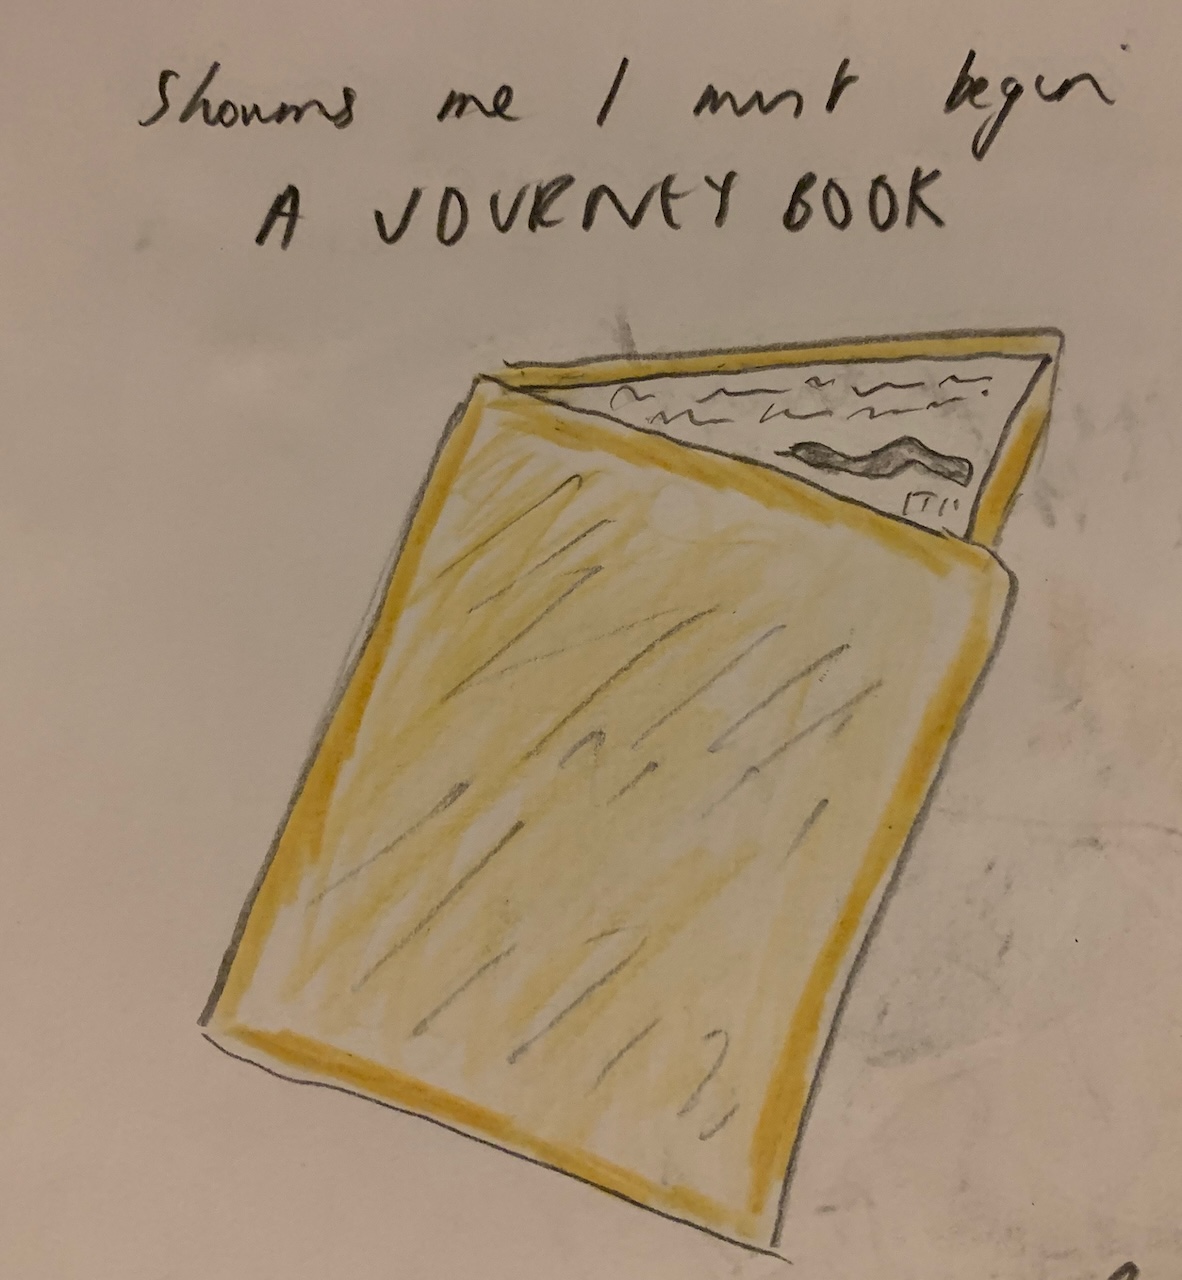 Showms me I must begin
A JOURNEY BOOK